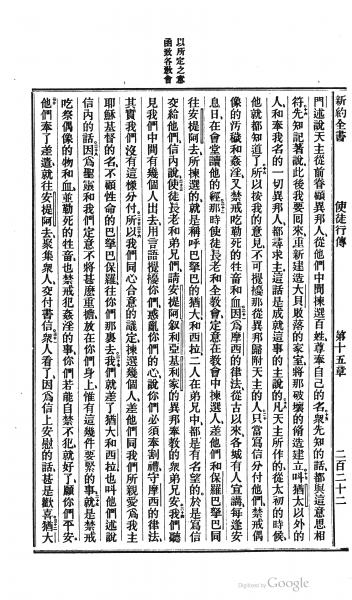 新約全書　使徒行傳　第十五章　二百二十二
以所定之意
函致各敎會
門述說天主從前眷顧異邦人從他們中間揀選百姓尊奉自己的名衆先知的話都與這意思相
符先知記著說此後我要回來重新建造大闢敗落的家室將那破壞的脩造建立叫猶太以外的
人和奉我名的一切異邦人都尋求主這話是成就這事的主說的凡天主所作的從太初的時候
他就都知道了所以按我的意見不可攪擾那從異邦歸附天主的人只當寫信分付他們禁戒偶
像的汚穢和姦淫又禁戒吃勒死的牲畜和血因爲摩西的律法從古以來各城有人宣講每逢安
息日在會堂讀他的經那時使徒長老和全敎會定意在敎會中揀選人差他們和保羅巴拏巴同
往安提阿去所揀選的就是稱呼巴撒巴的猶大和西拉二人在弟兄中都是有名望的於是寫信
交給他們信內說使徒長老和弟兄們請安提阿叙利亞基利家的異邦奉敎的衆弟兄安我們聽
見我們中間有幾個人出去用言語攪擾你們惑亂你們的心說你們必須奉割禮守摩西的律法
其實我們沒有這樣分付所以我們同心合意的議定揀選幾個人差他們同我們所親愛爲我主
耶穌基督的名不顧性命的巴拏巴保羅往你們那裏去我們就差了猶大和西拉也叫他們述說
信內的話因爲聖靈和我們定意不將甚麼重擔放在你們身上惟有這幾件要緊的事就是禁戒
吃祭偶像的物和血並勒死的牲畜也禁戒犯姦淫的事你們若能自禁不犯就好了願你們平安
他們奉了差遣就往安提阿去聚集衆人交付書信衆人看了因爲信上安慰的話甚是歡喜猶大
Digitized by Google